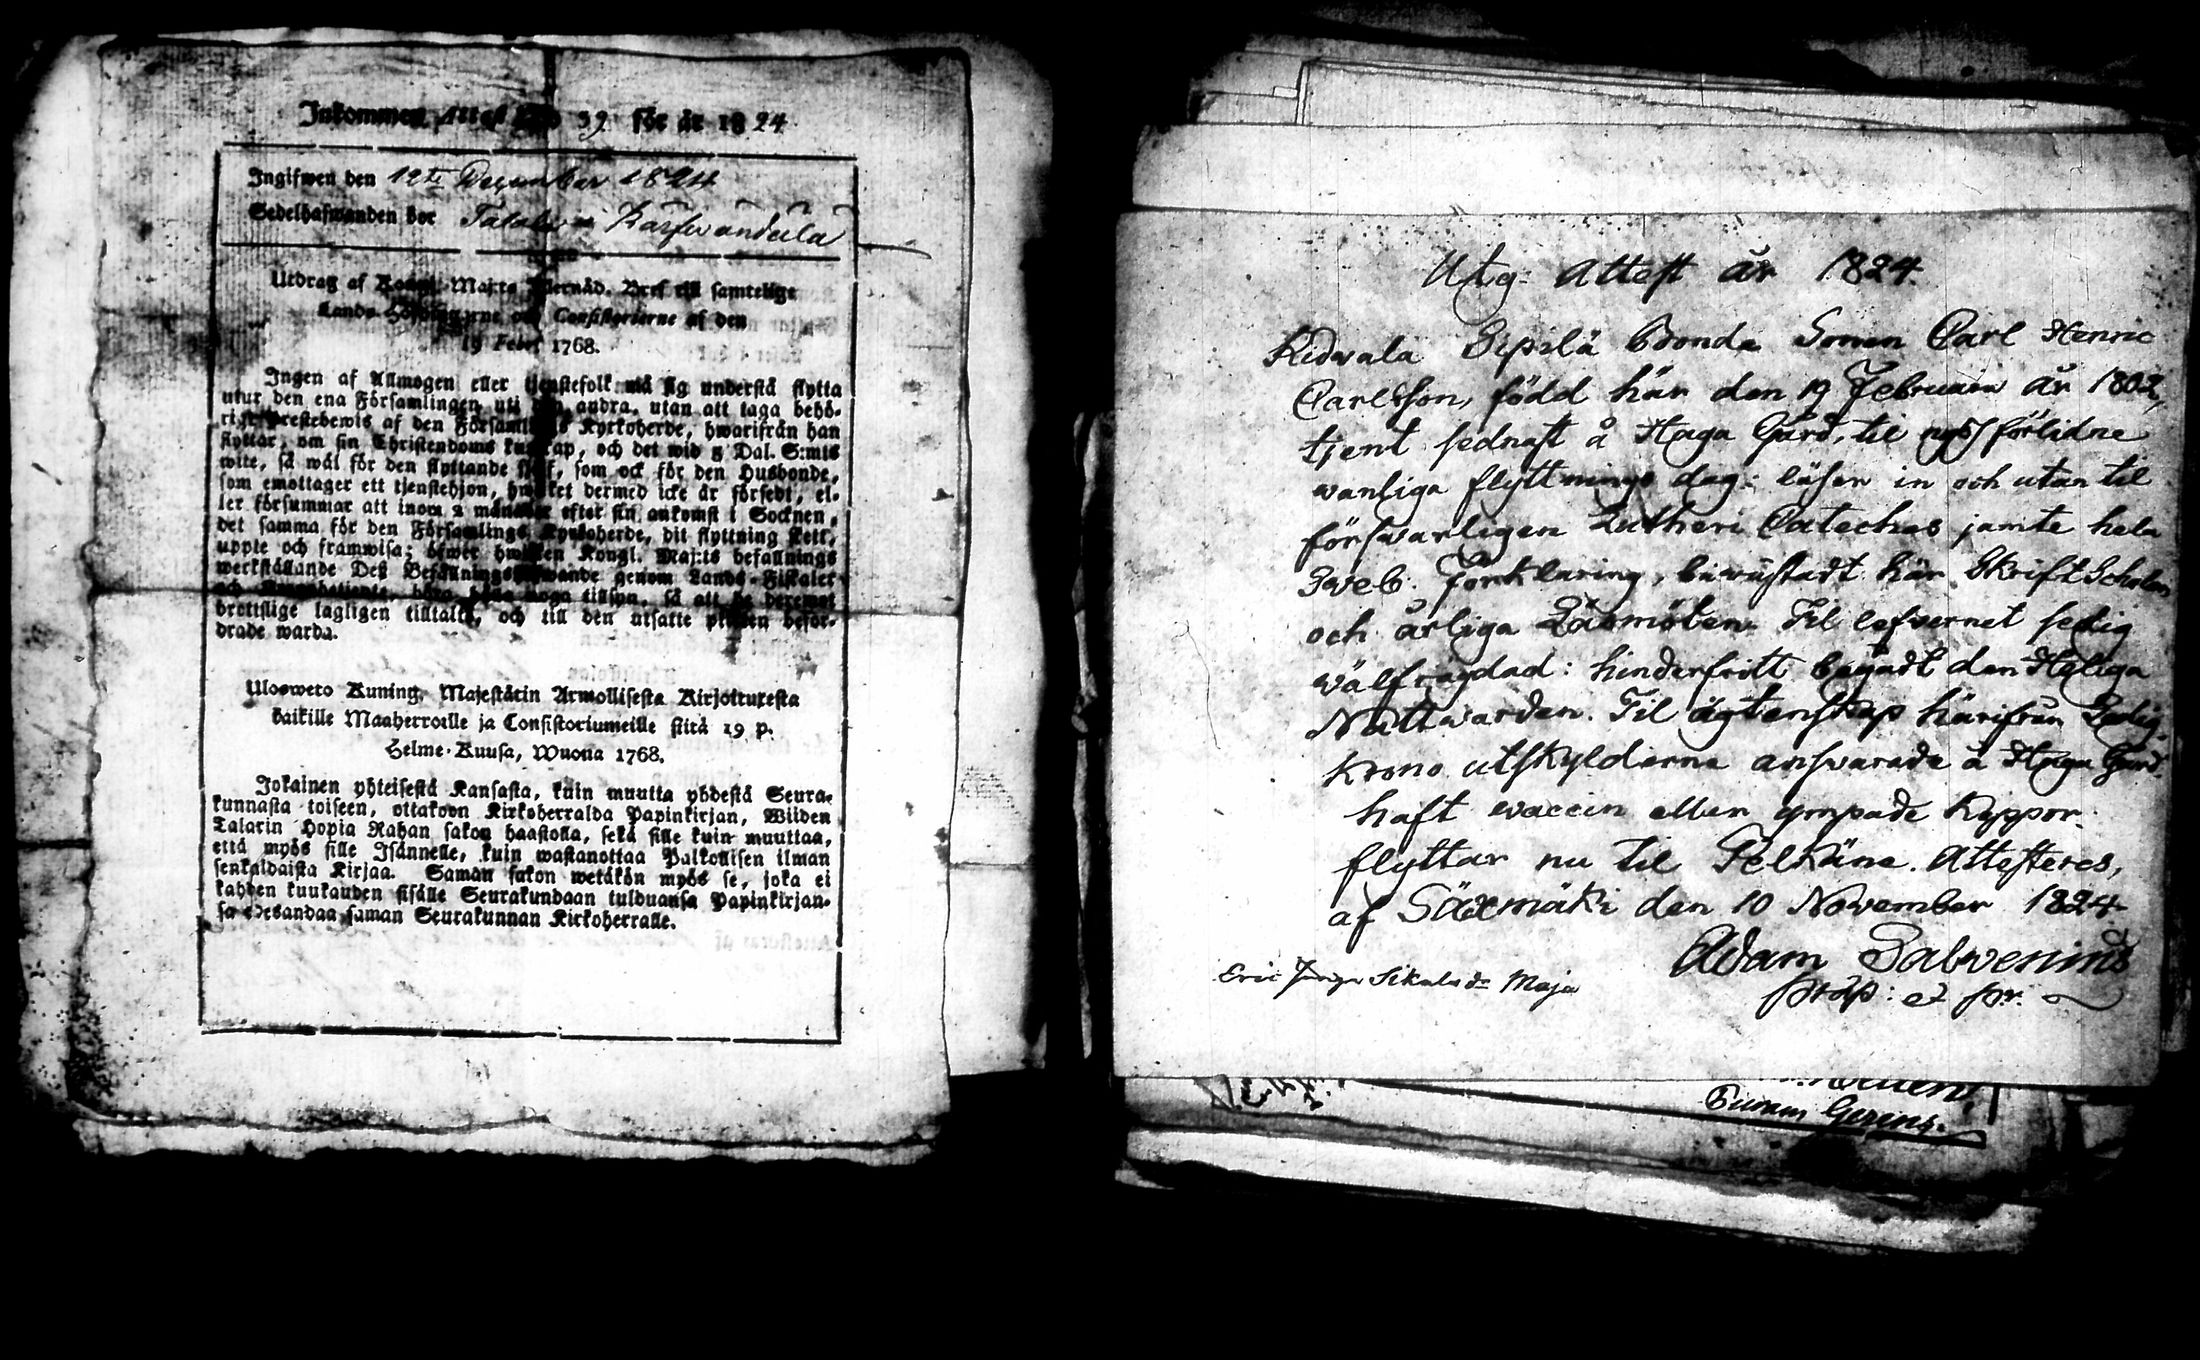 Inkommen Attest N:o 39 för år 1824
Ingifwen den 12te December 1824
Sedelhafwanden bor
Utdrag af Kongl. Maj:ts Nåd
Bref till samtelige
Lands-Höfdingarne och Consistorierne af den
19 Febr. 1768.
Ingen af Allmogen eller tjenstefolk må sig understå flytta
utur den ena Församlingen uti den andra, utan att taga behö-
rigt Prestebewis af den Församlings Kyrkoherde, hwarifrån han
flyttar, om sin Christendoms kunskap, och det wid 5 Dal. S:mts
wite, så wäl för den flyttande sjelf, som ock för den Husbonde,
som emottager ett tjenstehjon, hwilket dermed icke är försedt, el-
ler försummar att inom 2 månader efter sin ankomst i Socknen,
det samma för den Församlings Kyrkoherde, dit flyttning skett,
uppte och framwisa; öfwer hwilken Kongl. Maj:ts befallnings
werkställande Deß Befallningshafwande genom Lands-Fiskaler
och Krono
böra hafva noga tillsyn, så att de deremot
brottslige lagligen tilltalas, och till den utsatte plikten befor-
drade warda.
Ulosweto Kuning. Majestätin Armollisesta Kirjoituxesta
kaikille Maaherroille ja Consistoriumeille siitä 19 p.
Helme-Kuusa, Wuona 1768.
Jokainen yhteisestä Kansasta, kuin muutta yhdestä Seura-
kunnasta toiseen, ottakoon Kirkoherralda Papinkirjan, Wiiden
Talarin Hopia Rahan sakon haastolla, sekä sille kuin muuttaa,
että myös sille Isännelle, kuin wastanottaa Palkollisen ilman
senkaldaista Kirjaa. Saman sakon wetäkön myös se, joka ei
kahden kuukauden sisälle Seurakundaan tulduansa Papinkirjan-
sa edesandaa saman Seurakunnan Kirkoherralle.
Utg: Attest år 1824.
Kidvala Sipilä Bonda Sonen Carl Henric
Carlsson, född här den 19 Februarii år 1802,
tjent sednast å Haga Gård, til nyss förlidne
vanliga flyttnings dag: läser in och utan til
försvarligen Lutheri Cateches jemte hela
Sveb. Förklaring, bivistadt här Skrift Scholan
och årliga Läsmöten. Til lefvernet sedig
välfrägdad: hinderfritt begådt den Heliga
Nattvarden. Til ägtenskap härifrån Ledig.
Krono utskylderne ansvarade å Haga Gård.
haft vaccin eller ympade Koppor.
flyttar nu til Pelkäne. Attesteres,
af Säxmäki den 10 November 1824.
Adam Salvenius
Prop: et P:r.
Eric
Maja
Gerens.